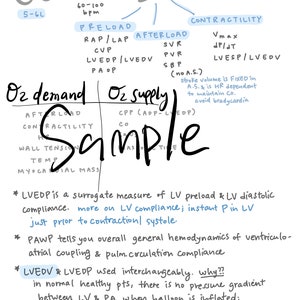 5-6L
60-100
bpm
PRELOAD AFTERLOAD CONTRACTILITY
RAP/LAP SVR Vmax
CVP PVR dP/dT
LVEDP/LVEDV SBP LVESP/LVESV
PAOP (no A.S.)
stroke volume is FIXED in
A.S. & is HR dependant
to maintain CO.
avoid bradycardia
O2 demand O2 supply
AFTERLOAD CPP (ADP-LVEDP)
CONTRACTILITY CO
WALL TENSION
TEMP
MYOCARDIAL MASS
Sample
* LVEDP is a surrogate measure of LV preload & LV diastolic
compliance. more on LV compliance; instant P in LV
just prior to contraction/systole
* PAWP tells you overall general hemodynamics of ventriculo-
atrial coupling & pulm circulation compliance
* LVEDV & LVEDP used interchangeably. why??
in normal healthy pts, there is no pressure gradient
between LV & PA when balloon is inflated: